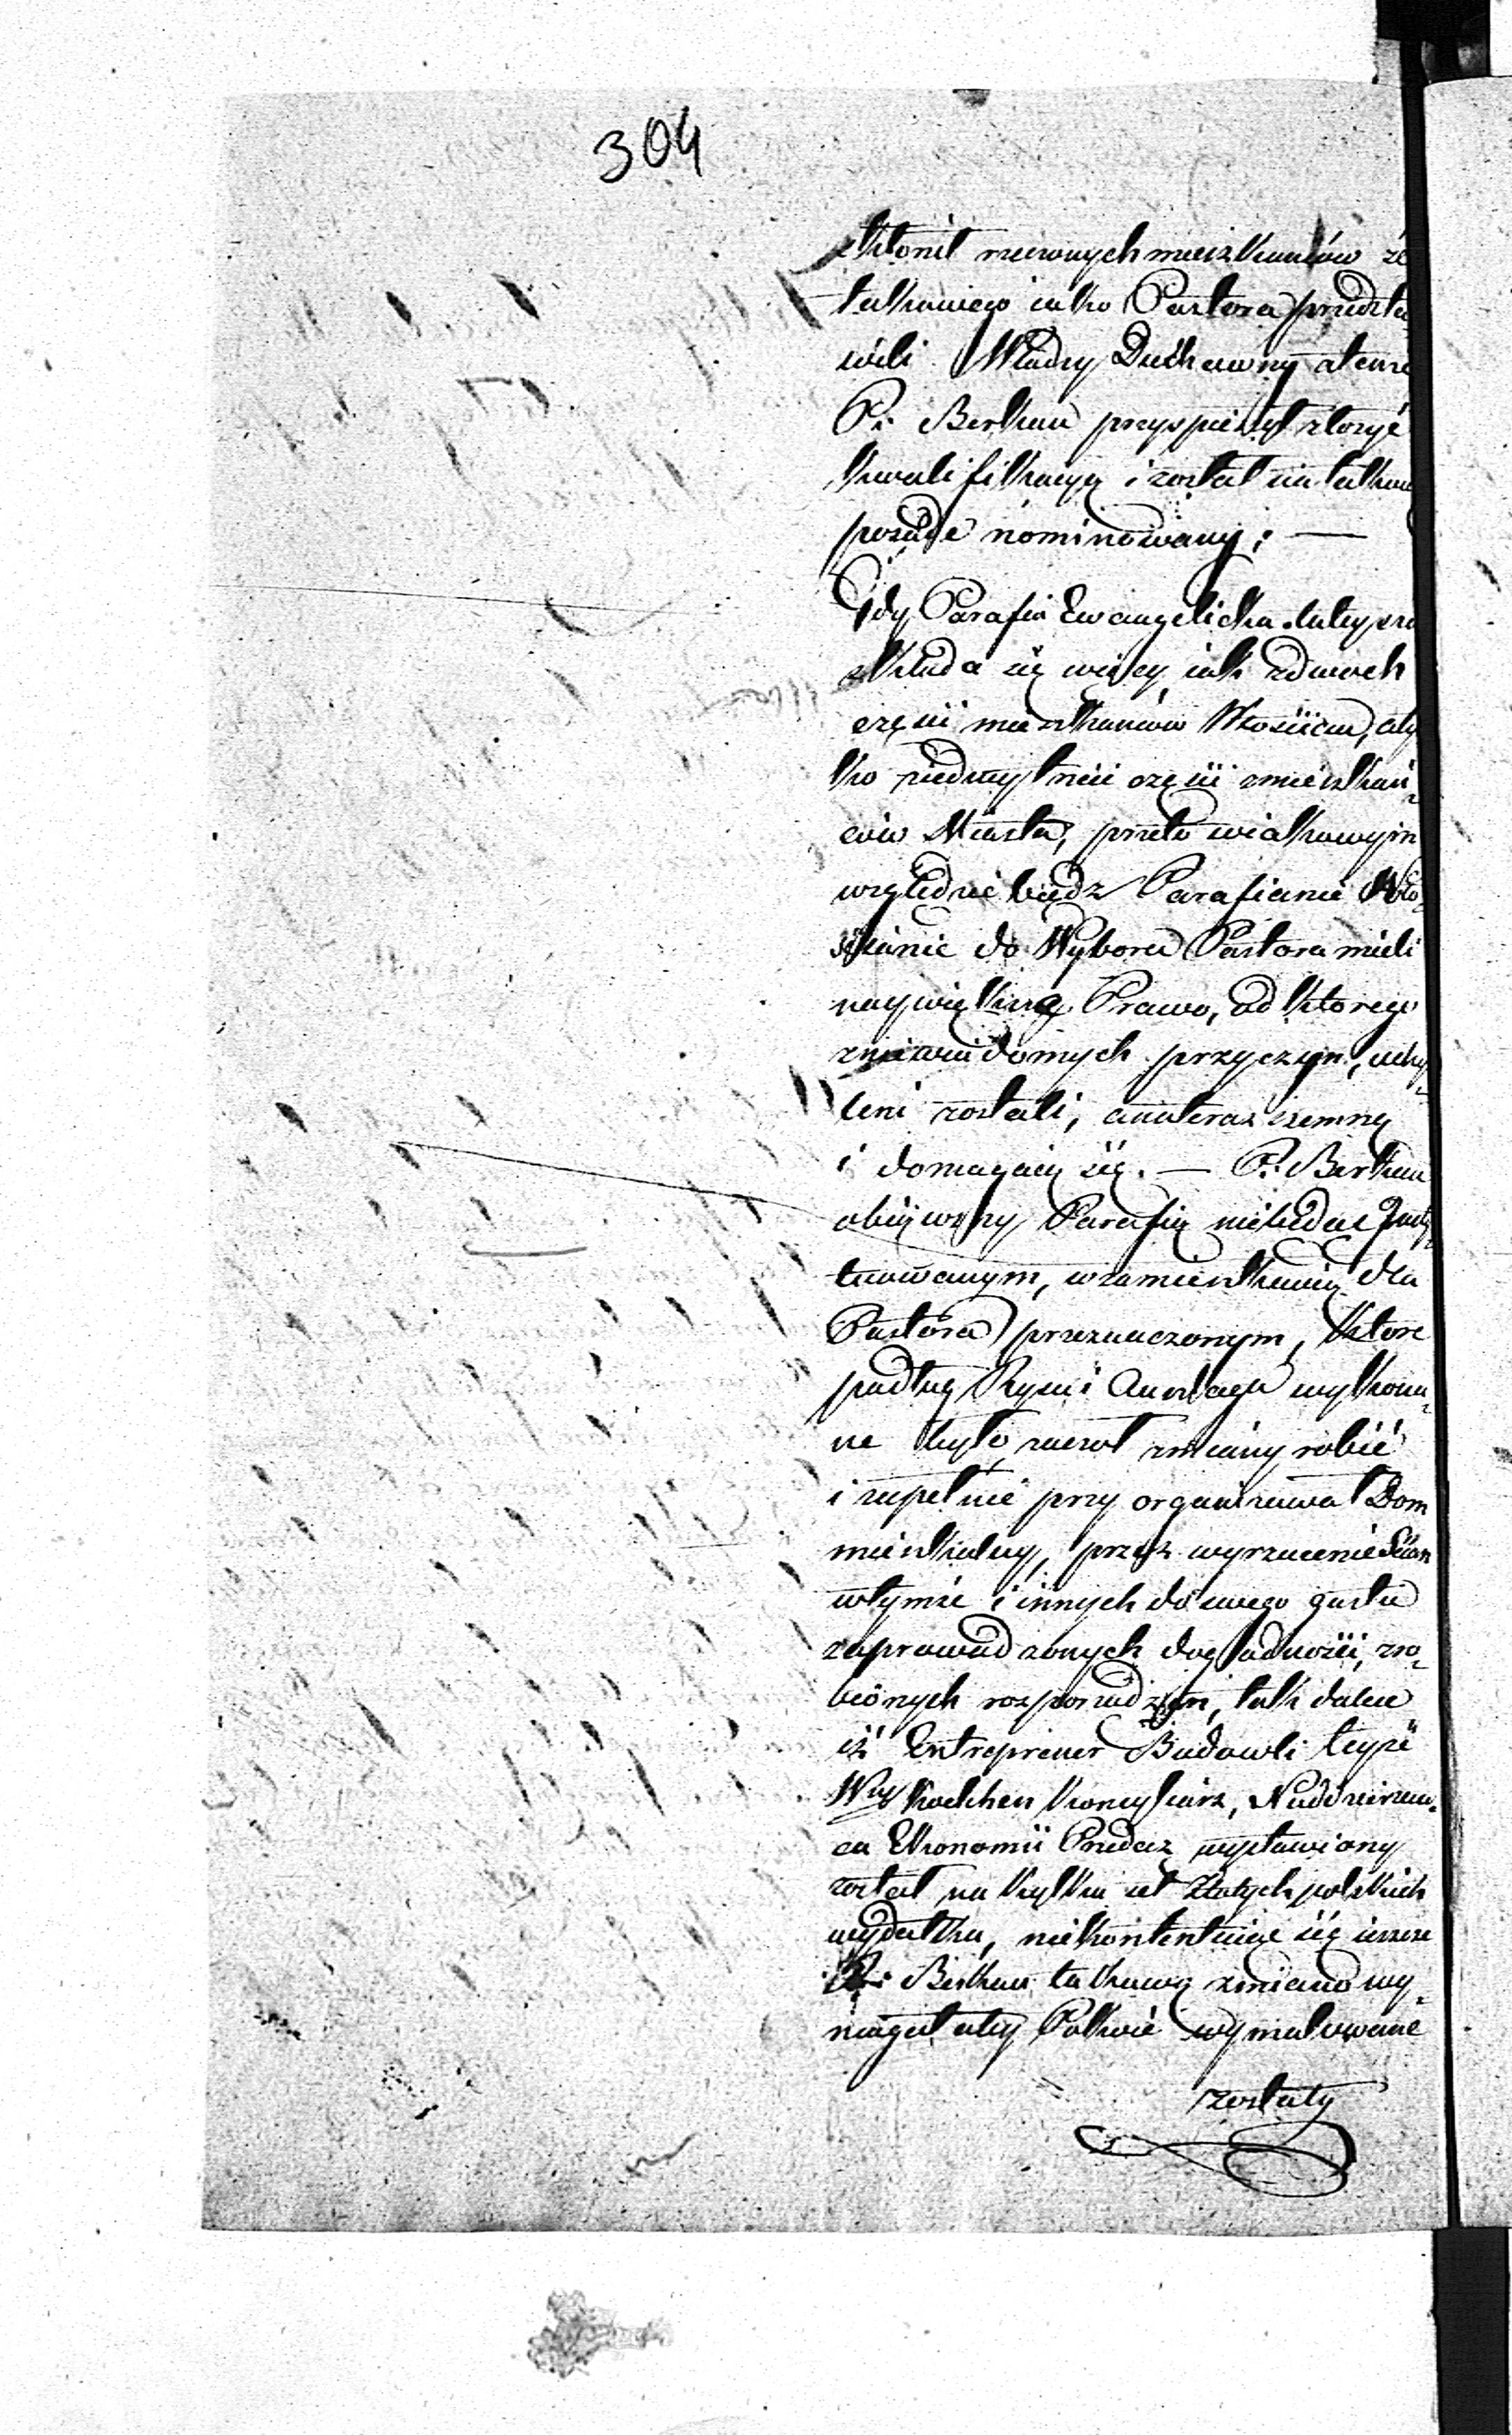 304
skłonił rzeczonych mieszkańców że
takowego iako Pastora przedsta
wili Władzy Duchowny a tenże
P: Berkau przyspieszył złożyć
kwalifikacyą i został na takow
posade nominowany; —
Gdy Parafia Ewangelicka tuteysza
składa się więcy iak zdwóch
części mieszkańców Włościan, a ty
ko niedwystnéi części zmieszkań-
ców Miasta, przeto wtakowym
względzie będz Parafianie Wło-
ścianie do Wyboru Pastora mieli
naywiększe Prawo, od którego
zniewiadomych przyczyn, uchy-
leni zostali, a
i domagaią się. — P. Berkau
obiąwszy Parafią niebędąc Insty-
tuowanym, wzamieszkaniu dla
Pastora przeznaczonym, które
podług Rysu i Anszlagu wykona-
ne było zaczął zmiany robić
i zupełnie przyorganizował Dom
mieszkalny, przez wyrzucenie Scian
wtymże i innych do swego gustu
zaprowadzonych dogodności, zro-
bionych rozporządzeń, tak dalece
iż Entreprener Budowli teyże
Wny Koelichen Konsyliarz, Naddzierzaw-
ca Ekonomii Przedecz wystawiony
został na kilka set Złotych polskich
wydatku, niekontentuiąc się ieszcze
P: Berkau takową zmianą wy-
magał aby Pokoie wymalowane
zostały